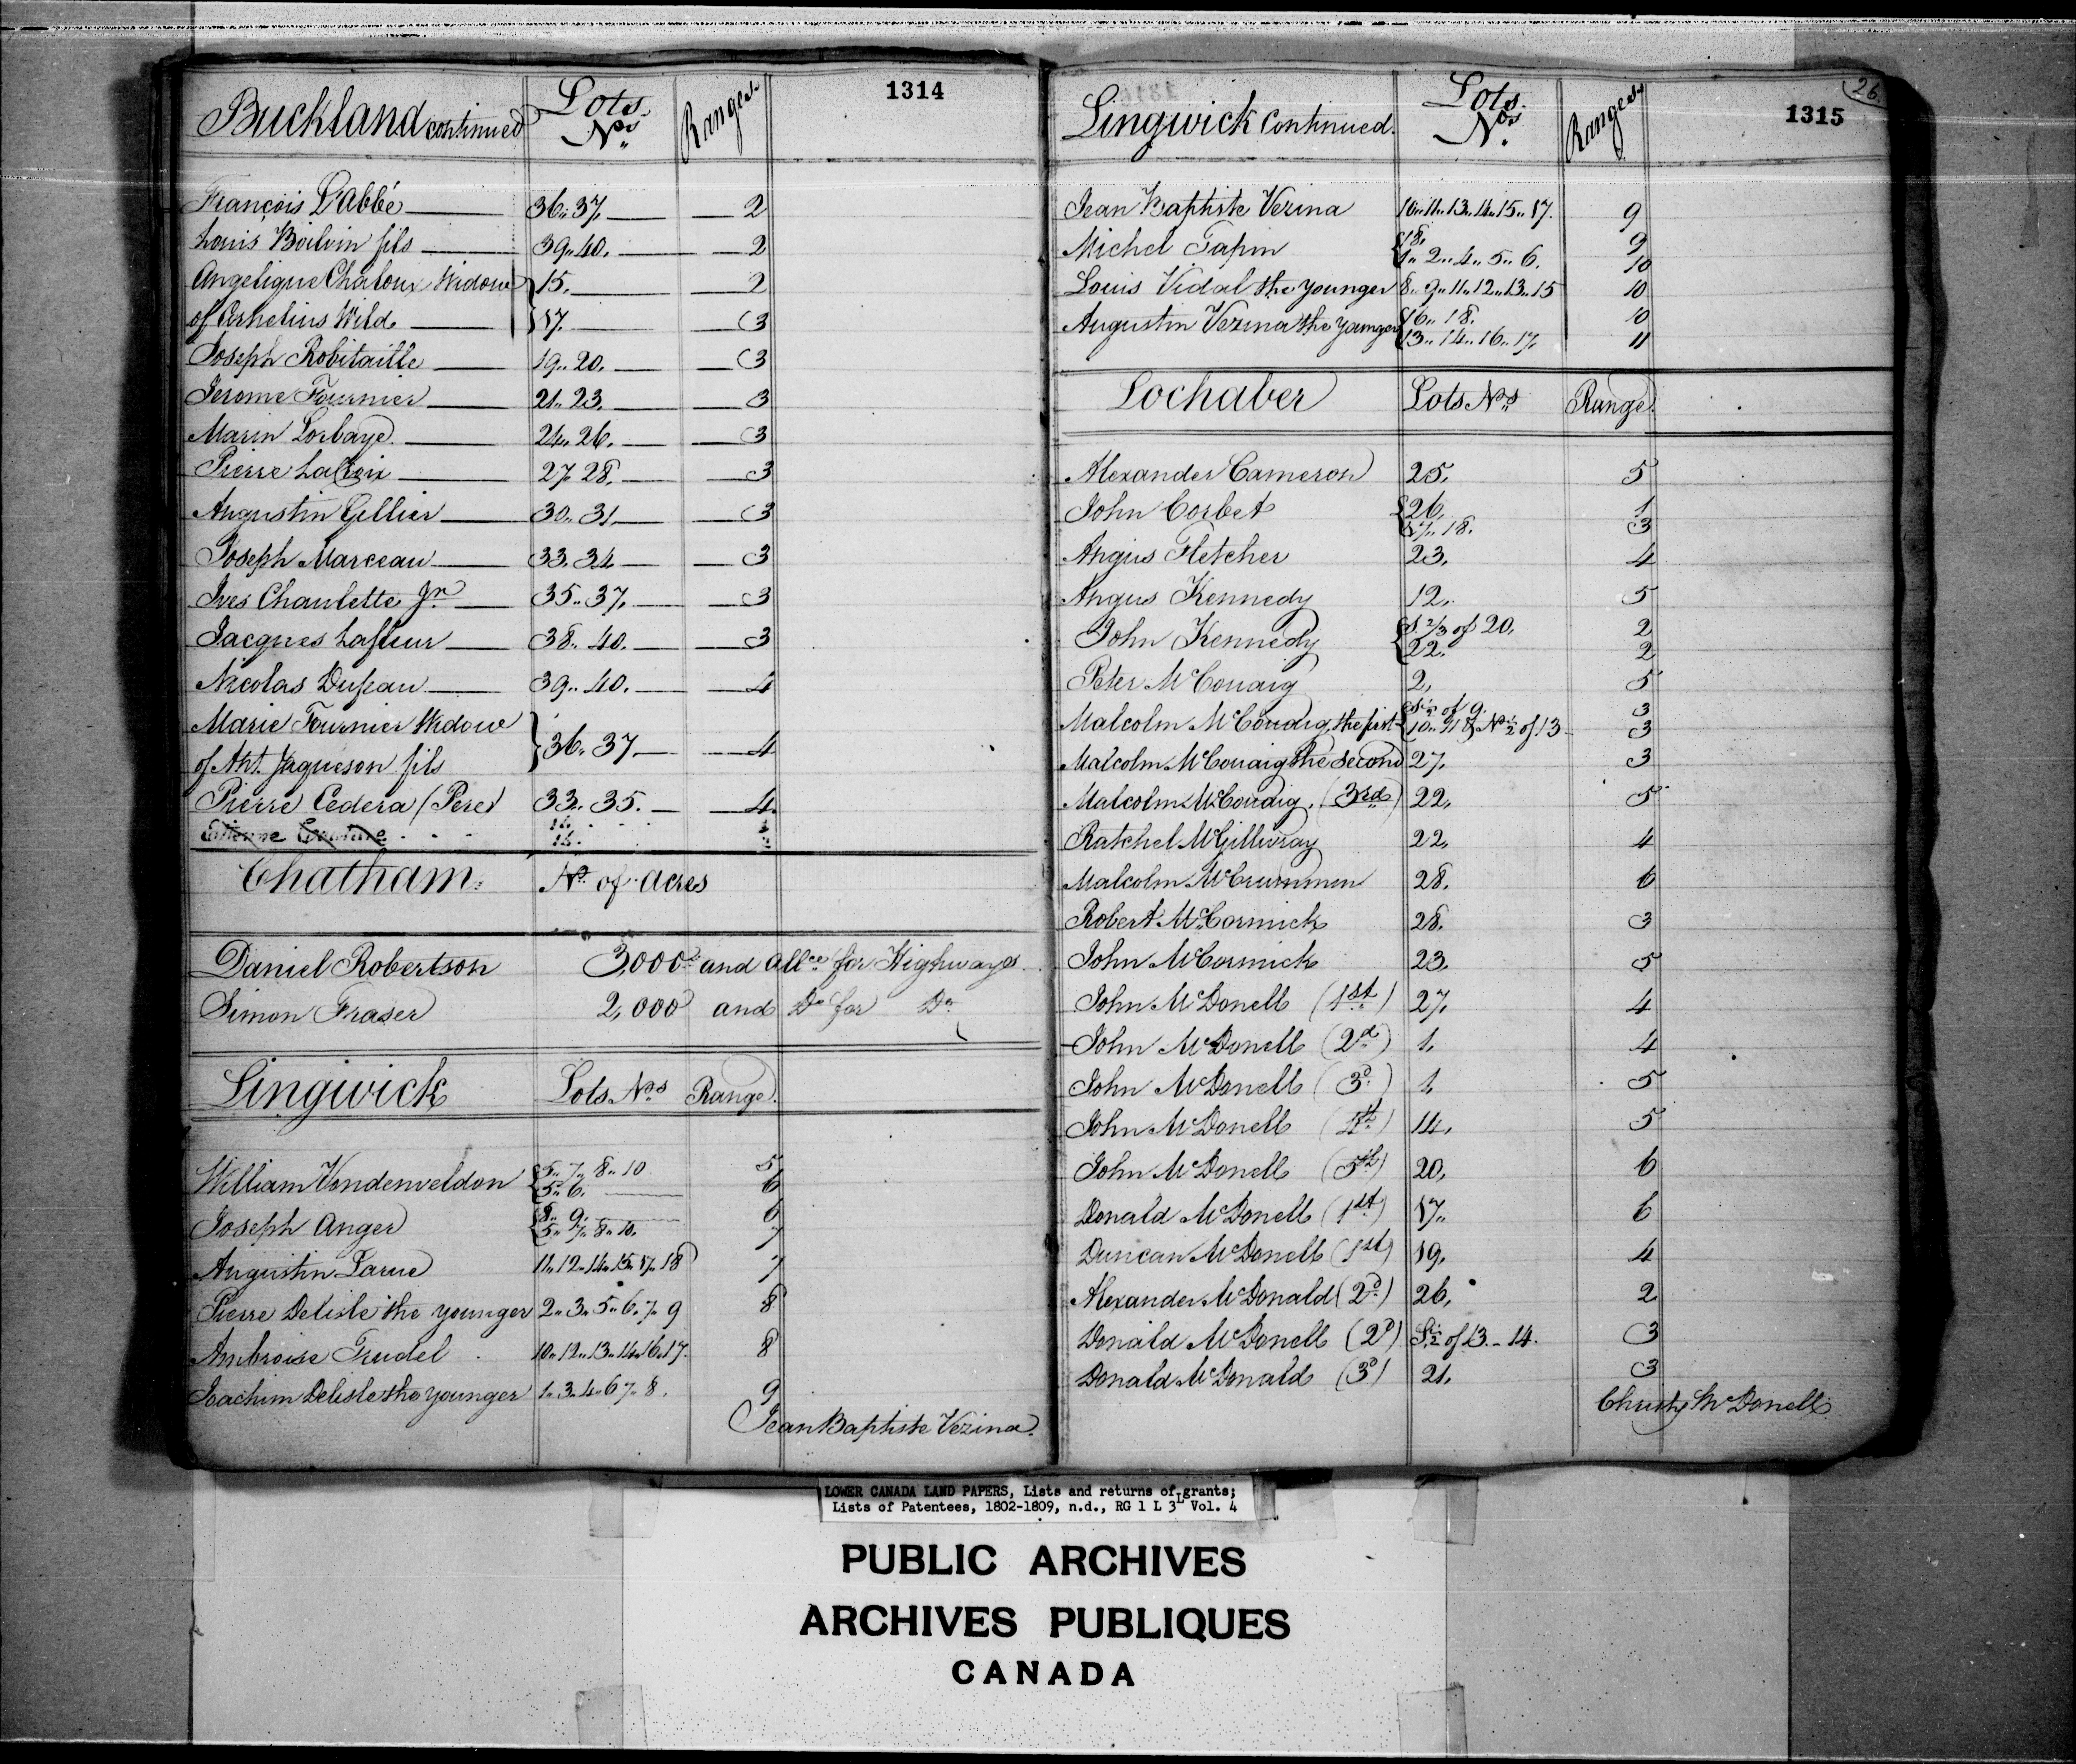 1314
Buckland continued Lots Nos. Ranges
François L'abbé 36..37. 2
Louis Boilvin fils 39..40. 2
Angelique Chaloux Widow 15. 2
of Cornelius Wild 17. 3
Joseph Robitaille 19..20. 3
Jerome Fournier 21..23. 3
Marin Lorbaye 24..26. 3
Pierre LaCroix 27 28. 3
Augustin Gellier 30..31 3
Joseph Marceau 33.34 3
Ives Chaulette Jnr 35..37. 3
Jacques Lafleur 38..40. 3
Nicolas Dupeau 39..40. 4
Marie Fournier Widow
of Ant. Jaqueson fils 36.37 4
Pierre Cedera (Pere) 33..35. 4
Etienne
Chatham No. of acres
Daniel Robertson 3,000 and allce for Highways
Simon Fraser 2,000 and Do for Do
Lingwick Lots Nos Range
William Vondenveldon 5..7..8..10 5
5..6. 6
Joseph Anger 8..9. 6
5..7..8..10. 7
Augustin Larue 11..12..14..15..17..18 7
Pierre Delisle the younger 2..3..5..6..7..9 8
Ambroise Trudel 10..12..13..14..16.17. 8
Joachim Delisle the younger 1..3..4..6 7..8. 9
Jean Baptiste Vezina
26.
1315
Lingwick Continued. Lots Nos. Ranges
Jean Baptiste Vezina 10..11..13..14..15..17. 9
Michel Tapin 18. 9
1..2..4..5..6. 10
Louis Vidal the younger 8..9..11..12..13..15 10
Augustin Vezina the younger 16..18. 10
13..14..16..17. 11
Lochaber Lots Nos Range
Alexander Cameron 25. 5
John Corbet 26. 1
17..18. 3
Angus Fletcher 23. 4
Angus Kennedy 12. 5
John Kennedy S 2/3 of 20. 2
22. 2
Peter McCouaig 2. 5
S 1/2 of 9. 3
Malcolm McCouaig, the first 10..11 & N 1/2 of 13 3
Malcolm McCouaig the Second 27. 3
Malcolm McCouaig. (3rd) 22. 5
Ratchel McGillivray 22. 4
Malcolm McCrummen 28. 6
Robert McCormick 28. 3
John McCormick 23. 5
John McDonell (1st) 27. 4
John McDonell (2d) 1. 4
John McDonell (3d) 1. 5
John McDonell (4th) 14. 5
John McDonell (5th) 20. 6
Donald McDonell (1st) 17. 6
Duncan McDonell (1st) 19. 4
Alexander McDonald (2d) 26. 2
Donald McDonell (2d) S 1/2 of 13..14. 3
Donald McDonald (3d) 21. 3
Christy McDonell
LOWER CANADA LAND PAPERS, Lists and returns of grants;
Lists of Patentees, 1802-1809, n.d., RG 1 L 3L Vol. 4
PUBLIC ARCHIVES
ARCHIVES PUBLIQUES
CANADA